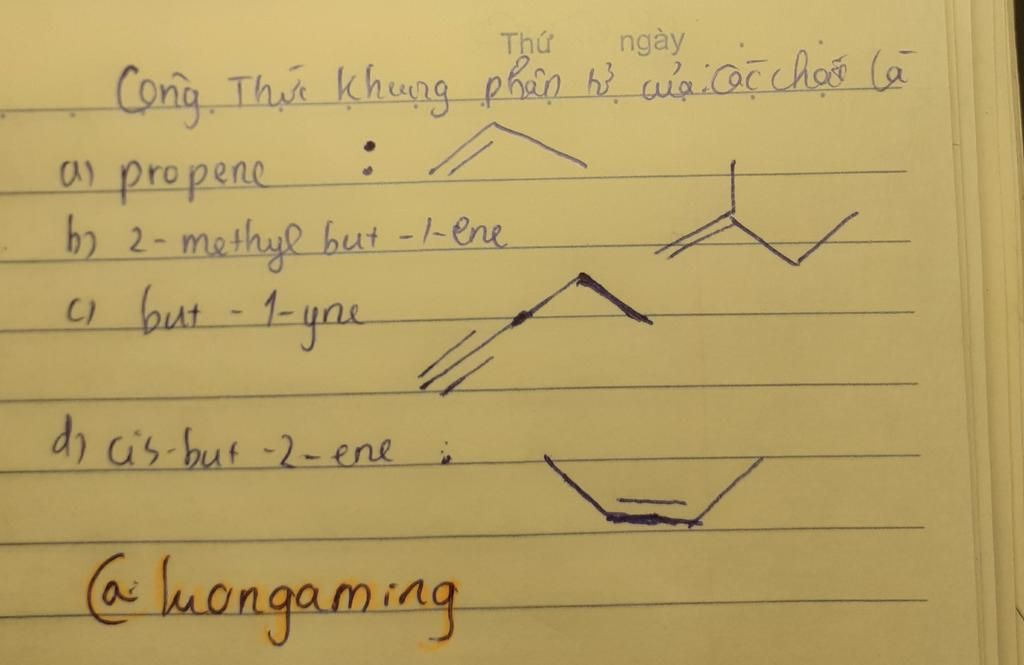 Thứ ngày
Công Thức khung phân tử của các chất là
a) propene :
b) 2-methyl but-1-ene
c) but-1-yne
d) cis-but-2-ene :
@luongaming